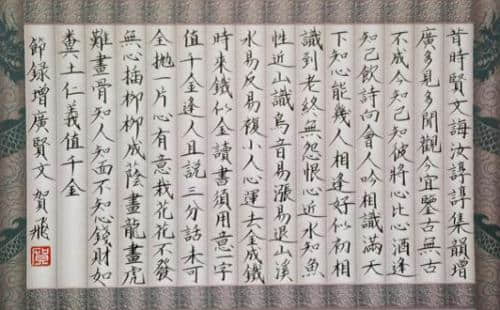 昔時賢文誨汝諄諄集韻增
廣多見多聞觀今宜鑒古無古
不成今知己知彼將心比心酒逢
知己飲詩向會人吟相識滿天
下知心能幾人相逢好似初相
識到老終無怨恨心近水知魚
性近山識鳥音易漲易退山溪
水易反易復小人心運去金成鐵
時來鐵似金讀書須用意一字
值千金逢人且說三分話未可
全拋一片心有意栽花花不發
無心插柳柳成蔭畫龍畫虎
難畫骨知人知面不知心錢財如
糞土仁義值千金
節録增廣賢文 賀飛